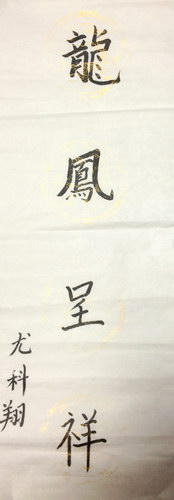 龍鳳呈祥
尤科翔